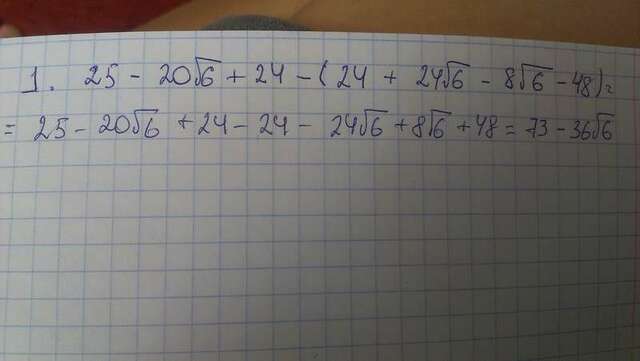 1. 25 - 20√6 + 24 - (24 + 24√6 - 8√6 - 48) =
= 25 - 20√6 + 24 - 24 - 24√6 + 8√6 + 48 = 73 - 36√6